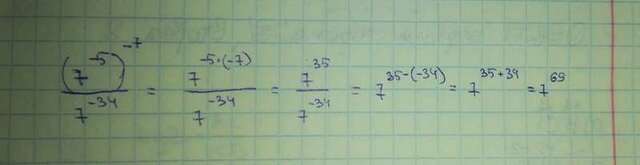 (7^-5)^-7 / 7^-34 = 7^-5·(-7) / 7^-34 = 7^35 / 7^-34 = 7^35-(-34) = 7^35+34 = 7^69